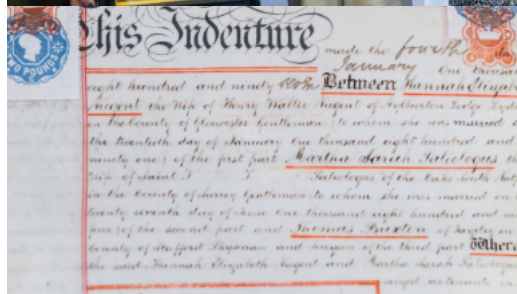 This Indenture made the fourth
TWO POUNDS
January One thousan
eight hundred and ninety Between Hannah Elizab
Nugent the Wife of Henry Walter Nugent of Aylburton Lodge Lydn
in the County of Gloucester Gentleman (to whom she was married o
the twentieth day of January One thousand eight hundred and
ninety one) of the first part Martha Sarah Paleologus the
Wife of Saint Paleologus of the Oaks South
in the County of Surrey Gentleman to whom she was married on
twenty seventh day of June One thousand eight hundred and
four) of the second part and Thomas of in
County of Stafford Physician and Surgeon of the third part Where
the said Hannah Elizabeth Nugent and Martha Sarah Paleologus
as tenants in